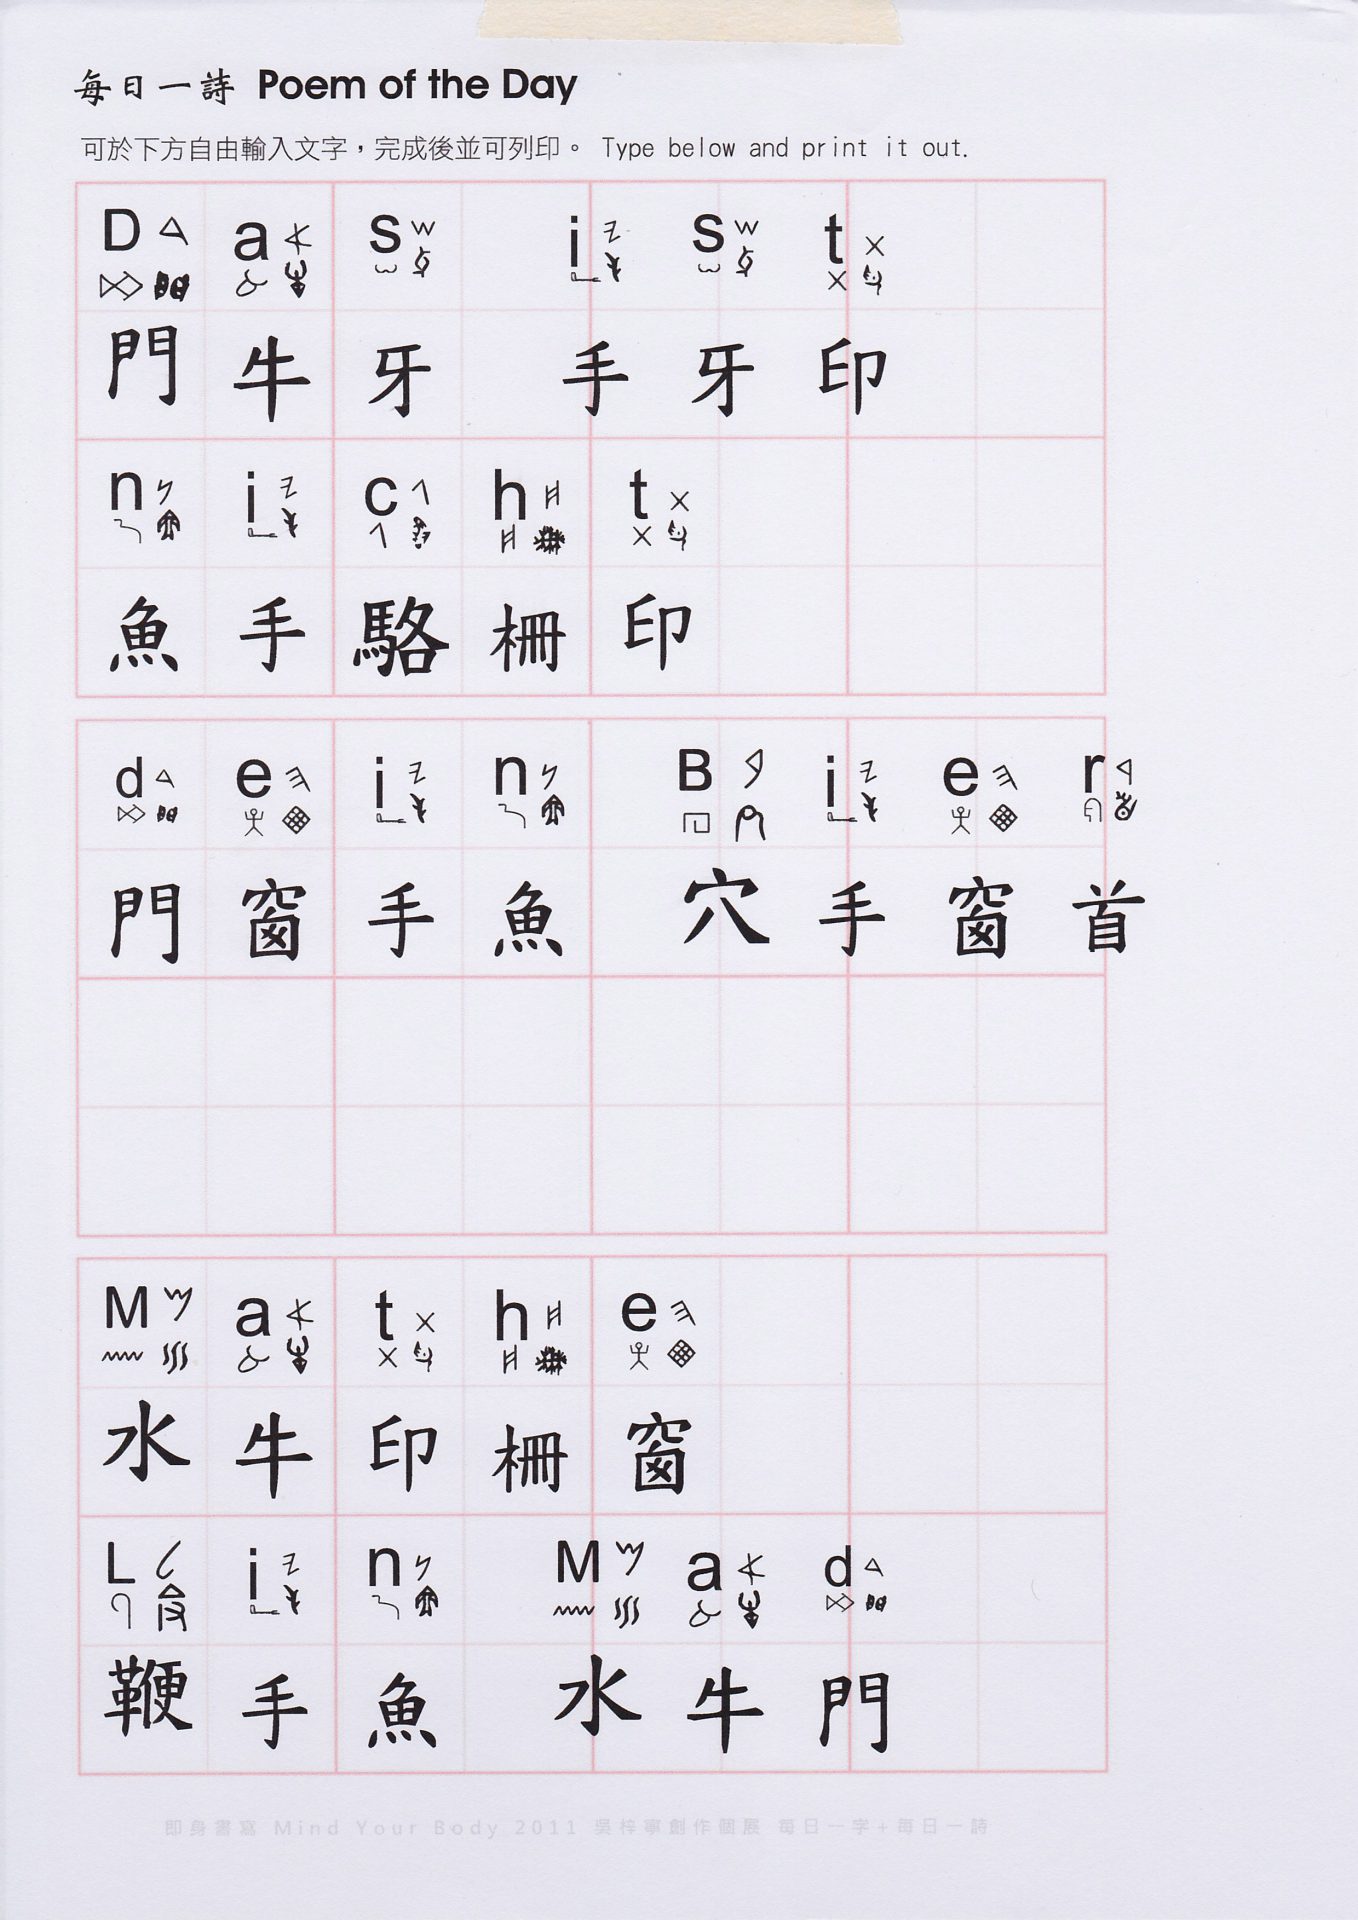 每日一詩 Poem of the Day
可於下方自由輸入文字，完成後並可列印。 Type below and print it out.
Das ist
門牛牙 手牙印
nicht
魚手駱柵印
dein Bier
門窗手魚 穴手窗首
Mathe
水牛印柵窗
Lin Mad
鞭手魚 水牛門
即身書寫 Mind Your Body 2011 吳梓寧創作個展 每日一字+每日一詩